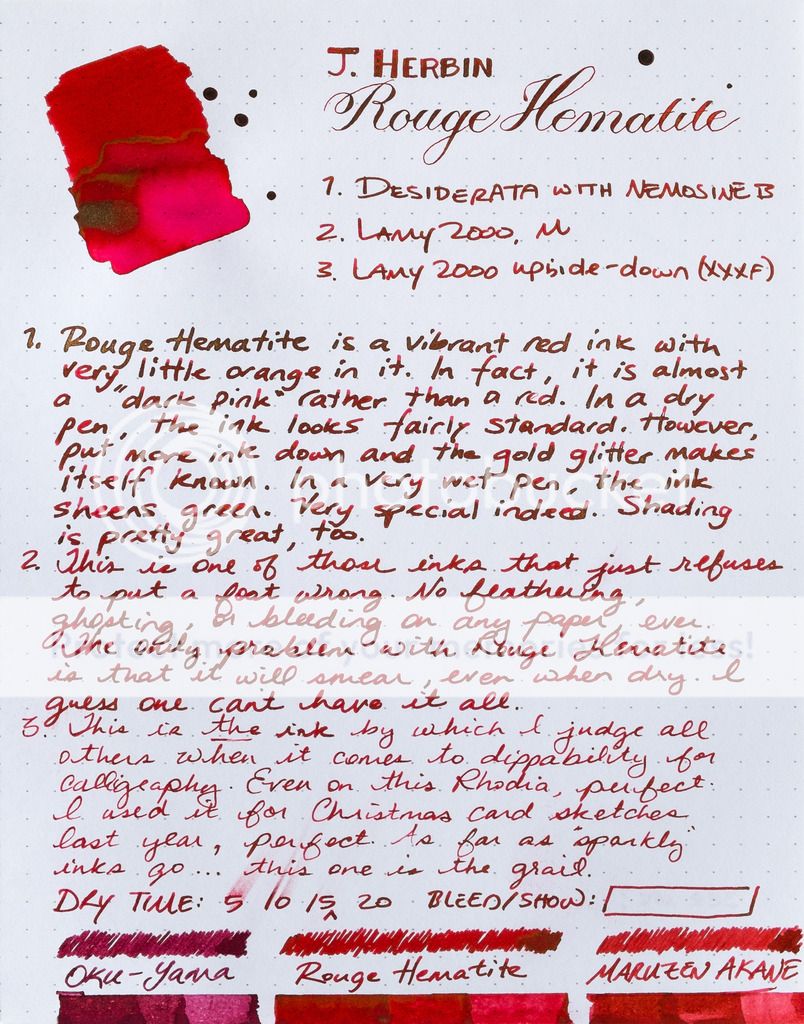 J. HERBIN
Rouge Hematite
1. DESIDERATA WITH NEMOSINE B
2. LAMY 2000, M
3. LAMY 2000 upside-down (XXXF)
1. Rouge Hematite is a vibrant red ink with
very little orange in it. In fact, it is almost
a "dark pink" rather than a red. In a dry
pen, the ink looks fairly standard. However,
put more ink down and the gold glitter makes
itself known. In a very wet pen, the ink
sheens green. Very special indeed. Shading
is pretty great, too.
2. This is one of those inks that just refuses
to put a foot wrong. No feathering,
ghosting, or bleeding on any paper, ever.
The only problem with Rouge Hematite
is that it will smear, even when dry. I
guess one cant have it all.
3. This is the ink by which I judge all
others when it comes to dippability for
calligraphy. Even on this Rhodia, perfect.
I used it for Christmas card sketches
last year, perfect. As far as "sparkly"
inks go... this one is the grail.
DRY TIME: 5 10 15 20 BLEED/SHOW:
OKU-YAMA Rouge Hematite MARUZEN AKANE
photobucket
Protect more of your memories for less!